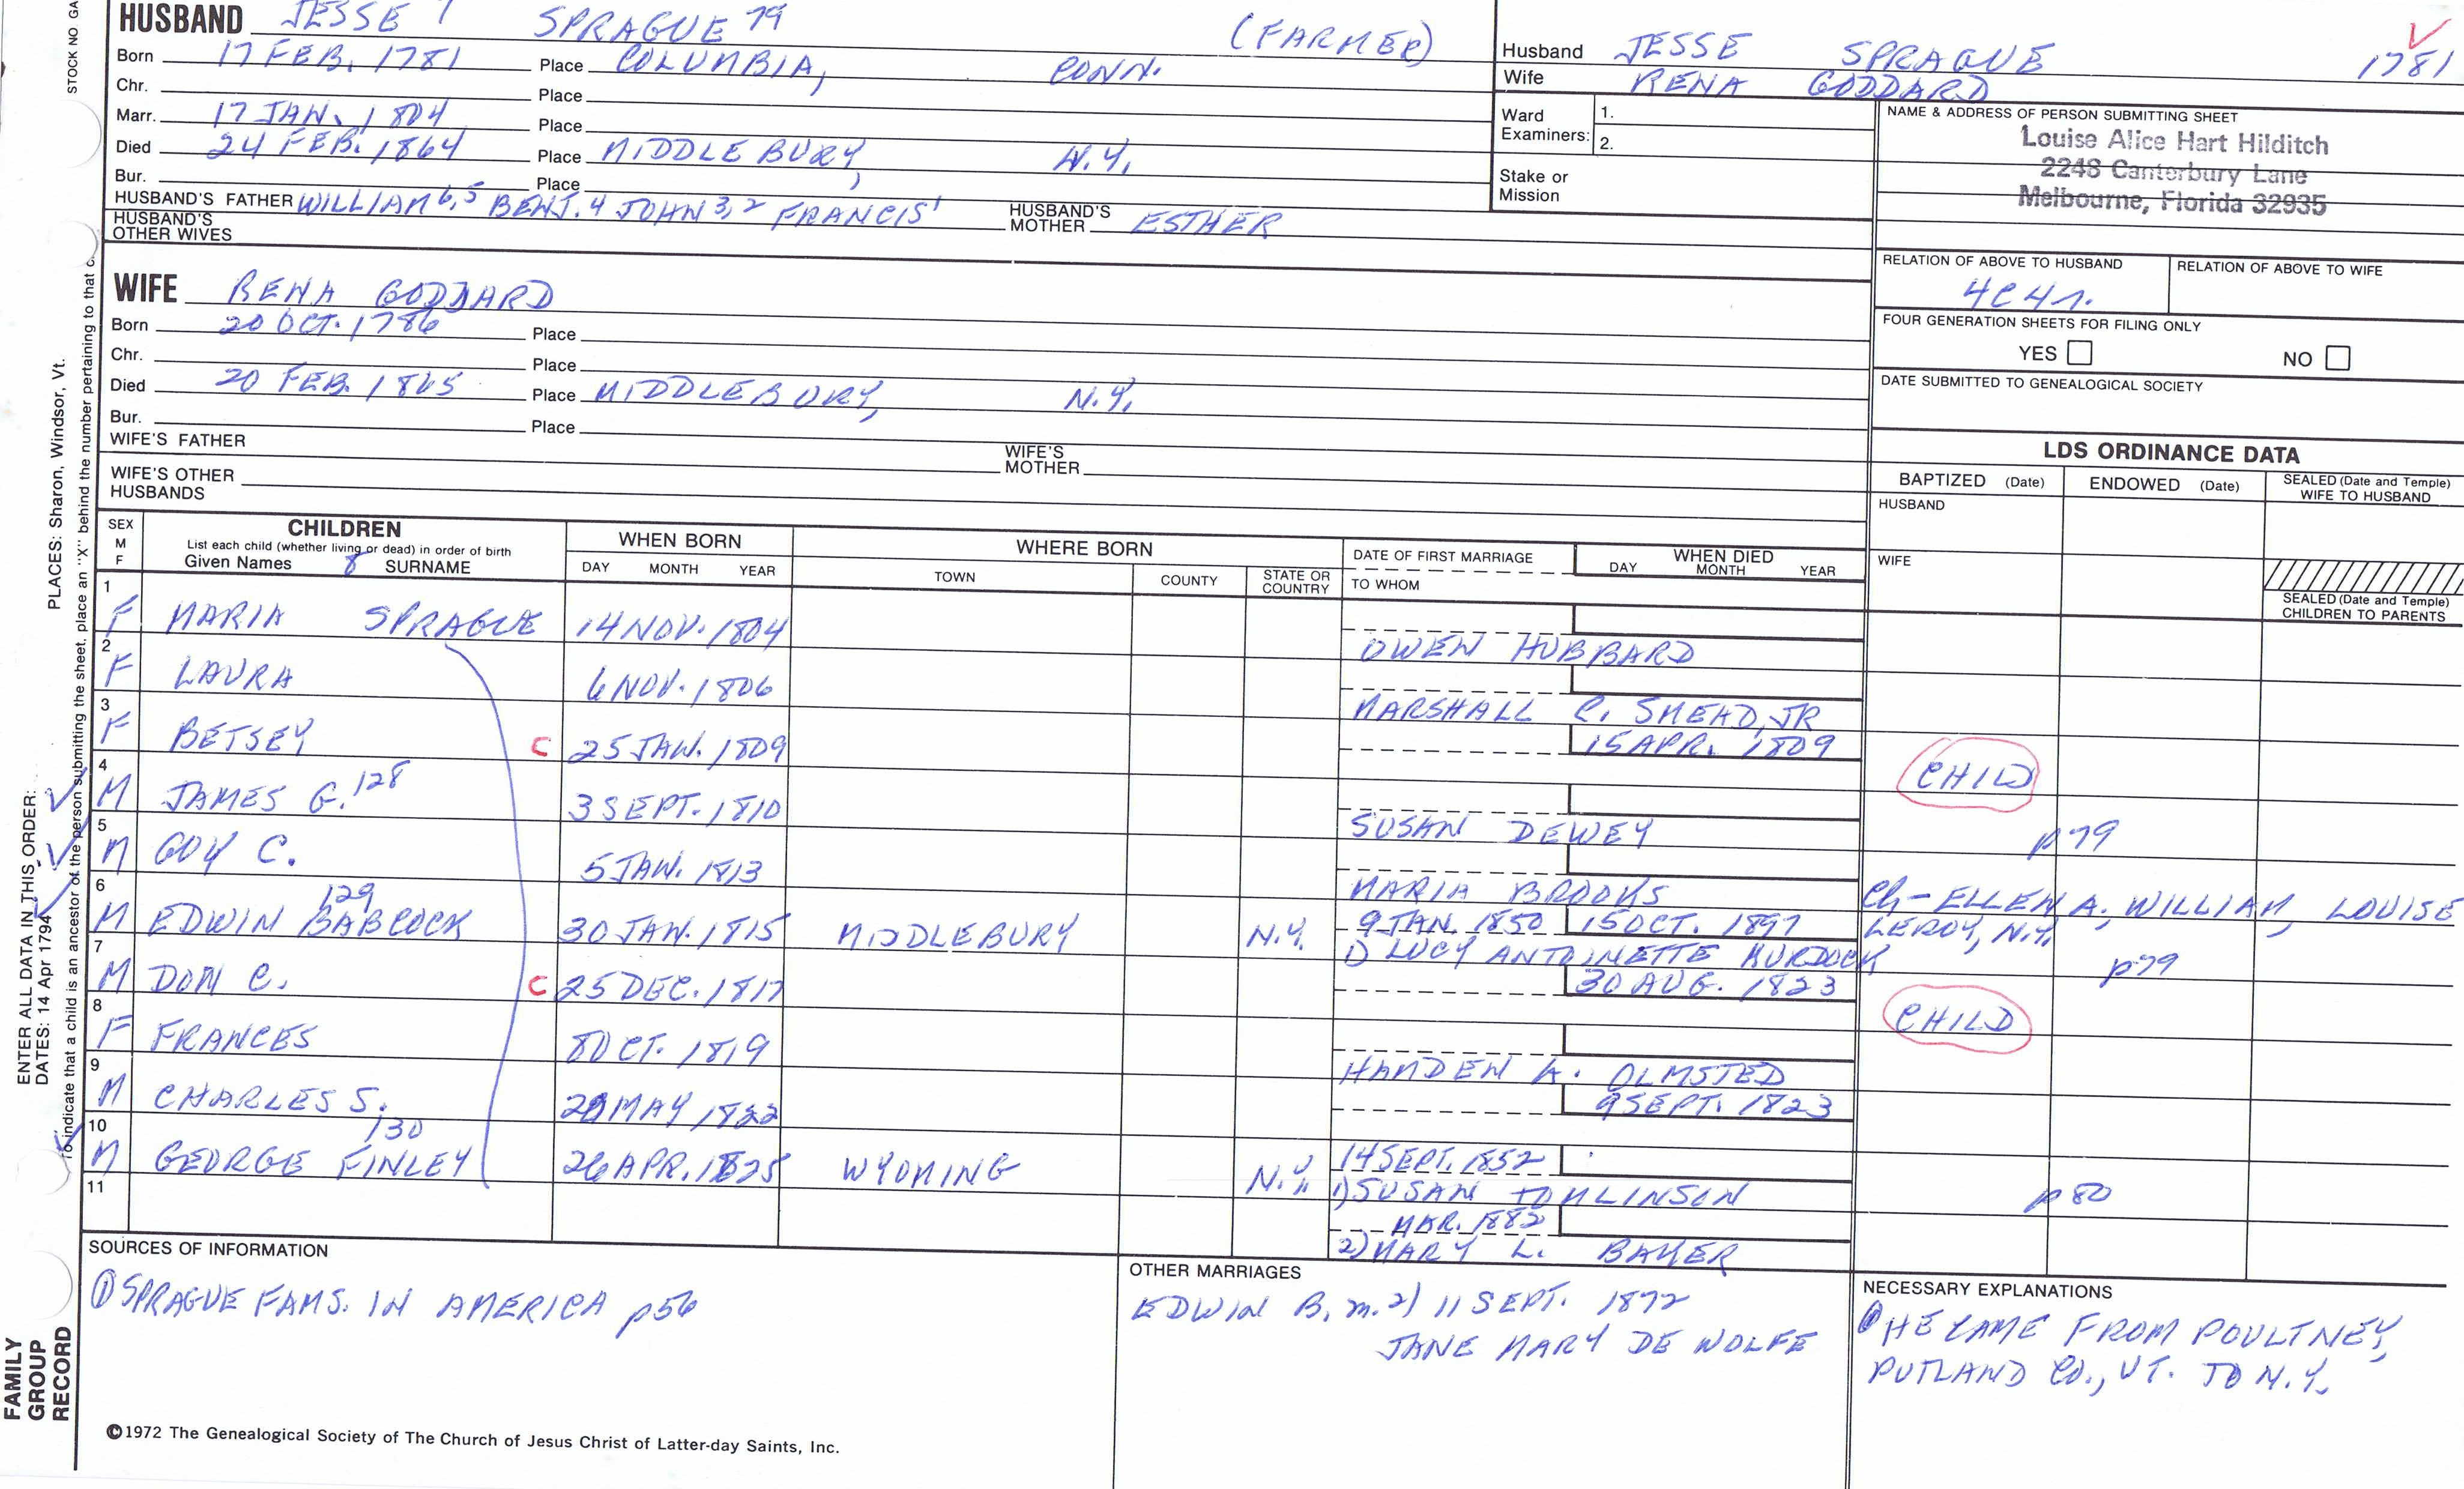 HUSBAND JESSE 7 SPRAGUE 79 (FARMER)
Born 17 FEB. 1781 Place COLUMBIA, CONN.
Chr. Place
Marr. 17 JAN. 1804 Place
Died 24 FEB. 1864 Place MIDDLEBURY, N.Y.
Bur. Place
HUSBAND'S FATHER WILLIAM 6,5 BENJ. 4 JOHN 3,2 FRANCIS 1 HUSBAND'S MOTHER ESTHER
HUSBAND'S OTHER WIVES
Husband JESSE SPRAGUE 1781
Wife RENA GODDARD
Ward Examiners: 1.
2.
Stake or Mission
NAME & ADDRESS OF PERSON SUBMITTING SHEET
Louise Alice Hart Hilditch
2248 Canterbury Lane
Melbourne, Florida 32935
RELATION OF ABOVE TO HUSBAND RELATION OF ABOVE TO WIFE
4C4r.
FOUR GENERATION SHEETS FOR FILING ONLY
YES NO
DATE SUBMITTED TO GENEALOGICAL SOCIETY
WIFE RENA GODDARD
Born 20 OCT. 1786 Place
Chr. Place
Died 20 FEB. 1865 Place MIDDLEBURY, N.Y.
Bur. Place
WIFE'S FATHER WIFE'S MOTHER
WIFE'S OTHER HUSBANDS
LDS ORDINANCE DATA
BAPTIZED (Date) ENDOWED (Date) SEALED (Date and Temple) WIFE TO HUSBAND
HUSBAND
WIFE
SEALED (Date and Temple) CHILDREN TO PARENTS
SEX M F CHILDREN WHEN BORN WHERE BORN DATE OF FIRST MARRIAGE WHEN DIED
List each child (whether living or dead) in order of birth
Given Names 8 SURNAME DAY MONTH YEAR TOWN COUNTY STATE OR COUNTRY TO WHOM DAY MONTH YEAR
1 F MARIA SPRAGUE 14 NOV. 1804
OWEN HUBBARD
2 F LAURA 6 NOV. 1806
MARSHALL C. SMEAD, JR
3 F BETSEY C 25 JAN. 1809 15 APR. 1809
CHILD
4 M JAMES G. 128 3 SEPT. 1810
SUSAN DEWEY p79
5 M GUY C. 5 JAN. 1813
MARIA BROOKS Ch- ELLEN A., WILLIAM, LOUISE
6 M EDWIN BABCOCK 129 30 JAN. 1815 MIDDLEBURY N.Y. 9 JAN. 1850 15 OCT. 1897 LEROY, N.Y.
1) LUCY ANTOINETTE MURDOCK p79
7 M DON C. C 25 DEC. 1817 30 AUG. 1823
CHILD
8 F FRANCES 8 OCT. 1819
HAMDEN A. OLMSTED
9 M CHARLES S. MAY 1822 9 SEPT. 1823
10 M GEORGE FINLEY 130 26 APR. 1825 WYOMING N.Y. 14 SEPT. 1852
1) SUSAN TOMLINSON p80
11 MAR. 1882
2) MARY L. BAKER
SOURCES OF INFORMATION
① SPRAGUE FAMS. IN AMERICA p56
OTHER MARRIAGES
EDWIN B. m. 2) 11 SEPT. 1872
JANE MARY DE WOLFE
NECESSARY EXPLANATIONS
① HE CAME FROM POULTNEY,
RUTLAND CO., VT. TO N.Y.
©1972 The Genealogical Society of The Church of Jesus Christ of Latter-day Saints, Inc.
STOCK NO GA
PLACES: Sharon, Windsor, Vt.
ENTER ALL DATA IN THIS ORDER:
DATES: 14 Apr 1794
To indicate that a child is an ancestor of the person submitting the sheet, place an "X" behind the number pertaining to that c
FAMILY GROUP RECORD